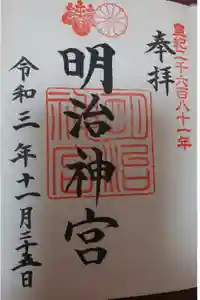 皇紀二千六百八十一年
奉拝
明治神宮
明治神宮
令和三年十一月二十五日